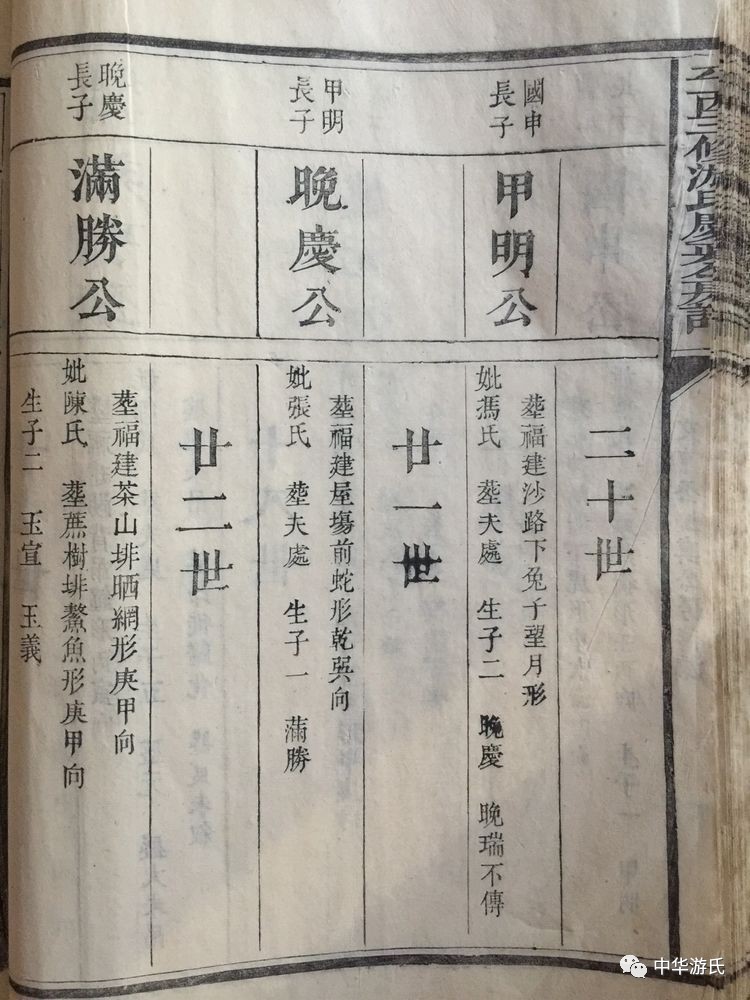 二十世
國申
長子
甲明公
葬福建沙路下兔子望月形
妣馮氏 葬夫處 生子二 晚慶 晚瑞不傳
廿一世
甲明
長子
晚慶公
葬福建屋塲前蛇形乾巽向
妣張氏 葬夫處 生子一 滿勝
廿二世
晚慶
長子
滿勝公
葬福建茶山排晒網形庚甲向
妣陳氏 葬蔗樹排鰲魚形庚甲向
生子二 玉宣 玉義
中华游氏